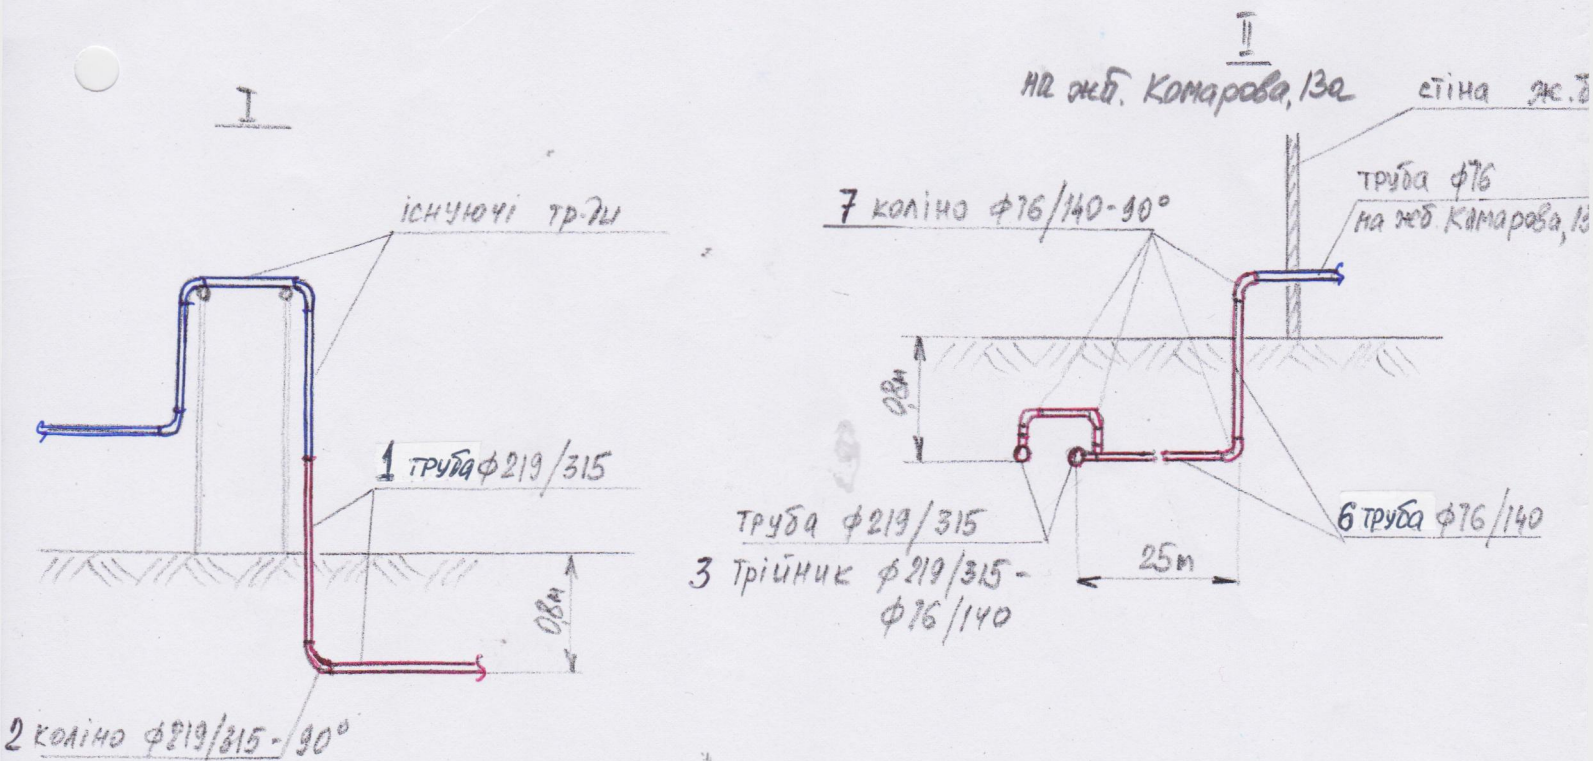 I
існуючі тр-ди
1 труба ф219/315
0,8м
2 коліно ф219/315-90°
II
на жб. Комарова, 13а
стіна ж.б
труба ф76
на жб. Комарова, 13
7 коліно ф76/140-90°
0,8м
труба ф219/315
3 трійник ф219/315-
ф76/140
25м
6 труба ф76/140